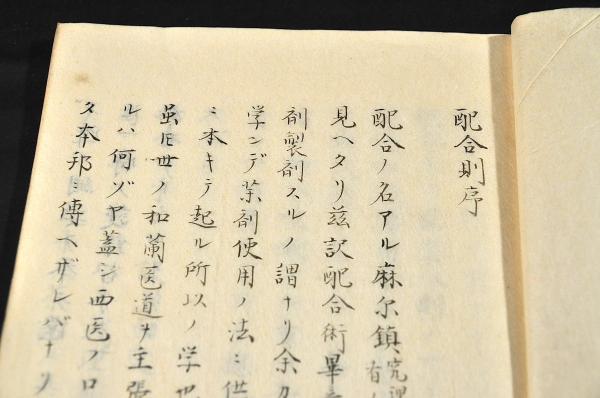 配合則序
配合ノ名アル麻尓鎮究理有
見ヘタリ茲訳配合術畢
剤製剤スルノ謂ナリ余
学ンデ薬剤使用ノ法ニ供
ニ本キテ起ル所以ノ学
虽𪜈世ノ和蘭医道ヲ主張
ルハ何ゾヤ蓋シ西医ノ
タ本邦ニ傳ヘザレバナリ